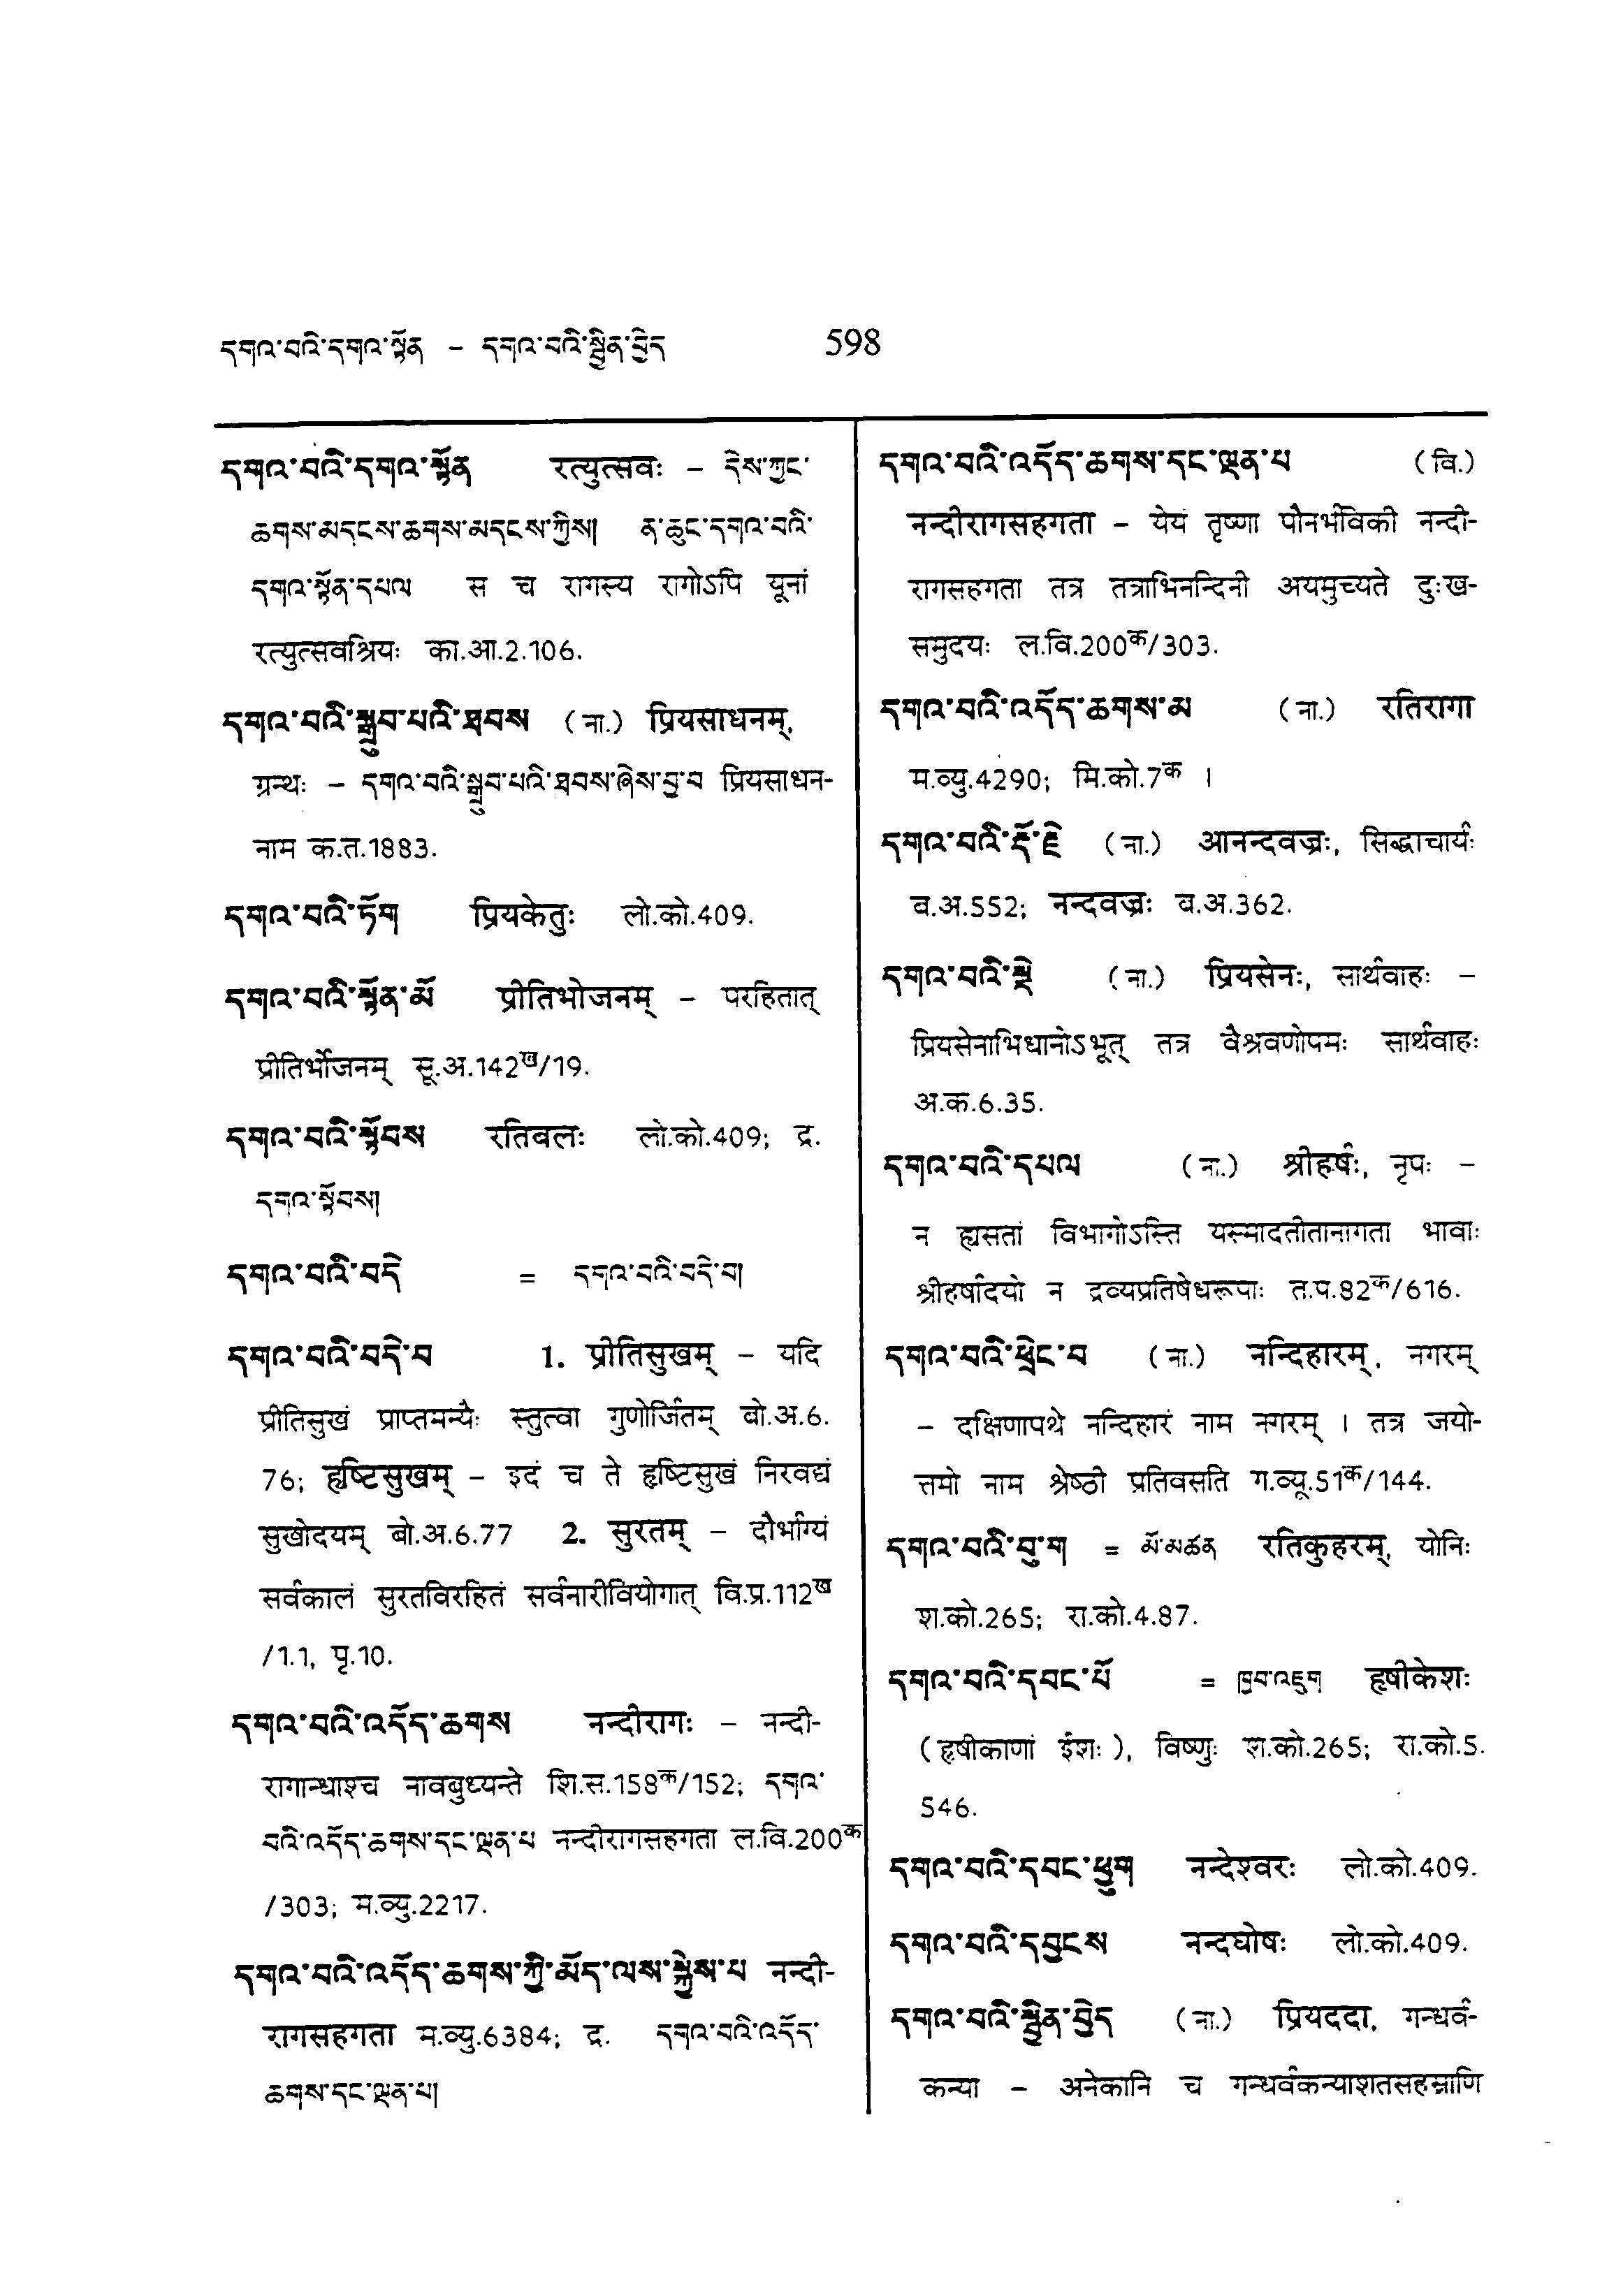 དགའ་བའི་དགའ་སྟོན – དགའ་བའི་སྦྱིན་བྱེད 598
དགའ་བའི་དགའ་སྟོན रत्युत्सवः – དེས་ཀྱང་
ཆགས་མདངས་ཆགས་མདངས་ཀྱིས། ན་ཆུང་དགའ་བའི་
དགའ་སྟོན་དཔལ स च रागस्य रागोऽपि यूनां
रत्युत्सवश्रियः का.आ.2.106.
དགའ་བའི་སྒྲུབ་པའི་ཐབས (ना.) प्रियसाधनम्,
ग्रन्थः – དགའ་བའི་སྒྲུབ་པའི་ཐབས་ཞེས་བྱ་བ प्रियसाधन-
नाम क.त.1883.
དགའ་བའི་ཏོག प्रियकेतुः लो.को.409.
དགའ་བའི་སྟོན་མོ प्रीतिभोजनम् – परहितात्
प्रीतिर्भोजनम् सू.अ.142ख/19.
དགའ་བའི་སྟོབས रतिबलः लो.को.409; द्र.
དགའ་སྟོབས།
དགའ་བའི་བདེ = དགའ་བའི་བདེ་བ།
དགའ་བའི་བདེ་བ 1. प्रीतिसुखम् – यदि
प्रीतिसुखं प्राप्तमन्यैः स्तुत्वा गुणोर्जितम् बो.अ.6.
76; हृष्टिसुखम् – इदं च ते हृष्टिसुखं निरवद्यं
सुखोदयम् बो.अ.6.77 2. सुरतम् – दौर्भाग्यं
सर्वकालं सुरतविरहितं सर्वनारीवियोगात् वि.प्र.112ख
/1.1, पृ.10.
དགའ་བའི་འདོད་ཆགས नन्दीरागः – नन्दी-
रागान्धाश्च नावबुध्यन्ते शि.स.158क/152; དགའ་
བའི་འདོད་ཆགས་དང་ལྡན་པ नन्दीरागसहगता ल.वि.200क
/303; म.व्यु.2217.
དགའ་བའི་འདོད་ཆགས་ཀྱི་མོད་ལས་སྐྱེས་པ नन्दी-
रागसहगता म.व्यु.6384; द्र. དགའ་བའི་འདོད་
ཆགས་དང་ལྡན་པ།
དགའ་བའི་འདོད་ཆགས་དང་ལྡན་པ (वि.)
नन्दीरागसहगता – येयं तृष्णा पौनर्भविकी नन्दी-
रागसहगता तत्र तत्राभिनन्दिनी अयमुच्यते दुःख-
समुदयः ल.वि.200क/303.
དགའ་བའི་འདོད་ཆགས་མ (ना.) रतिरागा
म.व्यु.4290; मि.को.7क ।
དགའ་བའི་རྡོ་རྗེ (ना.) आनन्दवज्रः, सिद्धाचार्यः
ब.अ.552; नन्दवज्रः ब.अ.362.
དགའ་བའི་སྡེ (ना.) प्रियसेनः, सार्थवाहः –
प्रियसेनाभिधानोऽभूत् तत्र वैश्रवणोपमः सार्थवाहः
अ.क.6.35.
དགའ་བའི་དཔལ (ना.) श्रीहर्षः, नृपः –
न ह्यसतां विभागोऽस्ति यस्मादतीतानागता भावाः
श्रीहर्षादयो न द्रव्यप्रतिषेधरूपाः त.प.82क/616.
དགའ་བའི་ཕྲེང་བ (ना.) नन्दिहारम्, नगरम्
– दक्षिणापथे नन्दिहारं नाम नगरम् । तत्र जयो-
त्तमो नाम श्रेष्ठी प्रतिवसति ग.व्यू.51क/144.
དགའ་བའི་བུ་ག = མོ་མཚན रतिकुहरम्, योनिः
श.को.265; रा.को.4.87.
དགའ་བའི་དབང་པོ = ཁྱབ་འཇུག हृषीकेशः
(हृषीकाणां ईशः), विष्णुः श.को.265; रा.को.5.
546.
དགའ་བའི་དབང་ཕྱུག नन्देश्वरः लो.को.409.
དགའ་བའི་དབྱངས नन्दघोषः लो.को.409.
དགའ་བའི་སྦྱིན་བྱེད (ना.) प्रियददा, गन्धर्व-
कन्या – अनेकानि च गन्धर्वकन्याशतसहस्राणि